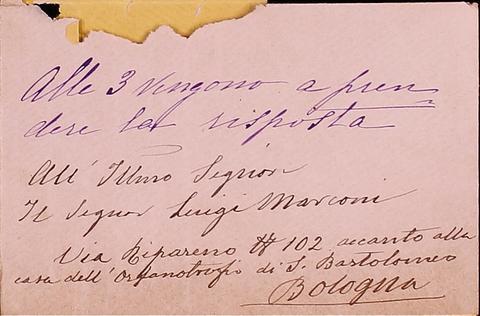 Alle 3 vengono a pren
dere la risposta
All' Illmo Signor
Il Signor Luigi Marconi
Via Ripareno # 102 accanto alla
casa dell'Orfanotrofio di S. Bartolomeo
Bologna